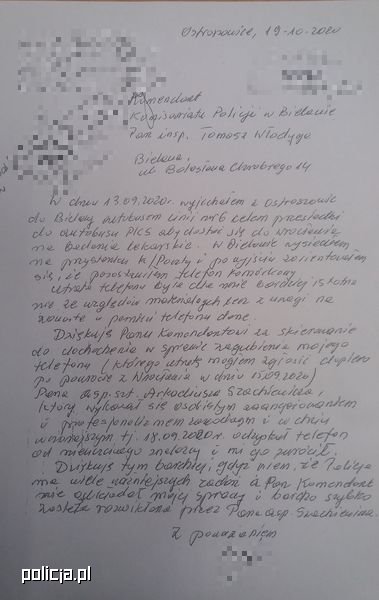 Ostroszowice, 19-10-2020
Komendant
Komisariatu Policji w Bielawie
Pan insp. Tomasz Włodyga
Bielawa,
ul. Bolesława Chrobrego 14
W dniu 13.09.2020r. wyjechałem z Ostroszowic
do Bielawy autobusem linii nr 6 celem przesiadki
do autobusu PKS aby dostać się do Wrocławia
na badania lekarskie. W Bielawie wysiadłem
na przystanku k/Poczty i po wyjściu zorientowałem
się, że pozostawiłem telefon komórkowy.
Utrata telefonu była dla mnie bardzo istotna
nie ze względów materialnych lecz z uwagi na
zawarte w pamięci telefonu dane.
Dziękuję Panu Komendantowi za skierowanie
do dochodzenia w sprawie zagubienia mojego
telefonu (którego utratę mogłem zgłosić dopiero
po powrocie z Wrocławia w dniu 15.09.2020)
Pana asp. szt. Arkadiusza Szachniewicza,
który wykazał się osobistym zaangażowaniem
i profesjonalizmem zawodowym i w dniu
wczorajszym tj. 18.09.2020r. odzyskał telefon
od nieuczciwego znalazcy i mi go zwrócił.
Dziękuję tym bardziej, gdyż wiem, że Policja
ma wiele ważniejszych zadań a Pan Komendant
nie odkładał mojej sprawy i bardzo szybko
została rozwikłana przez Pana asp. Szachniewicza.
Z poważaniem
policja.pl